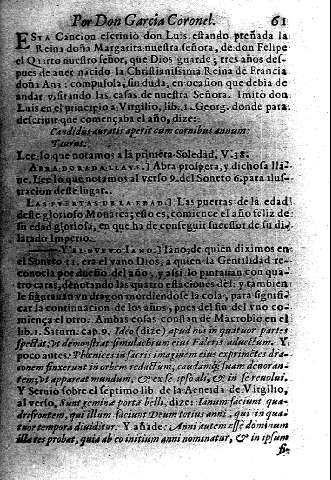 Por Don Garcia Coronel. 61
ESTA Cancion escriuio don Luis estando preñada la
Reina doña Margarita nuestra señora, de don Felipe
el Quarto nuestro señor, que Dios guarde; tres años des-
pues de auer nacido la Christianissima Reina de Francia
doña Ana: compusola, sin duda, en ocasion que debia de
andar visitando las casas de nuestra Señora. Imitò don
Luis en el principio a Virgilio, lib. 1. Georg. donde para
descriuir que començaba el año, dize:
Candidus auratis aperit cum cornibus annum
Taurus.
Lee lo que notamos a la primera Soledad, V. 38.
ABRA DORADA LLAVE.] Abra prospera, y dichosa lla-
ue. Lee lo que notamos al verso 9. del Soneto 6. para ilus-
tracion deste lugar.
LAS PVERTAS DE LA EDAD.] Las puertas de la edad
deste glorioso Monarca; esto es, comience el año feliz de
su edad gloriosa, en que ha de conseguir sucessor de su di-
latado Imperio.
Y AL NVEVO IANO.] Iano, de quien diximos en
el Soneto era el vano Dios, a quien la Gentilidad re-
conocia por dueño del año; y assi lo pintauan con qua-
tro caras, denotando las quatro estaciones dèl: y tambien
le figurauan vn dragon mordiendose la cola, para signifi-
car la continuacion de los años, pues del fin del vno co-
miença el otro. Ambas cosas consta de Macrobio en el
lib. 1. Saturn. cap. 9. Ideo (dize) apud nos in quatuor partes
spectat, vt demonstrat simulachrum eius Faleris aduectum. Y
poco antes: Phœnices in sacris imaginem eius exprimentes dra-
conem finxerunt in orbem redactum, caudamq; suam denoran-
tem; vt appareat mundum, & ex se ipso ali, & in se reuolui.
Y Seruio sobre el septimo lib. de la Aeneida de Virgilio,
al verso, Sunt geminæ porta belli, dize: Ianum faciunt qua-
drifrontem, qui illum faciunt Deum totius anni, qui in qua-
tuor tempora diuiditur. Y añade: Anni autem esse dominum
illa res probat, quià ab eo initium anni nominatur, & in ipsum